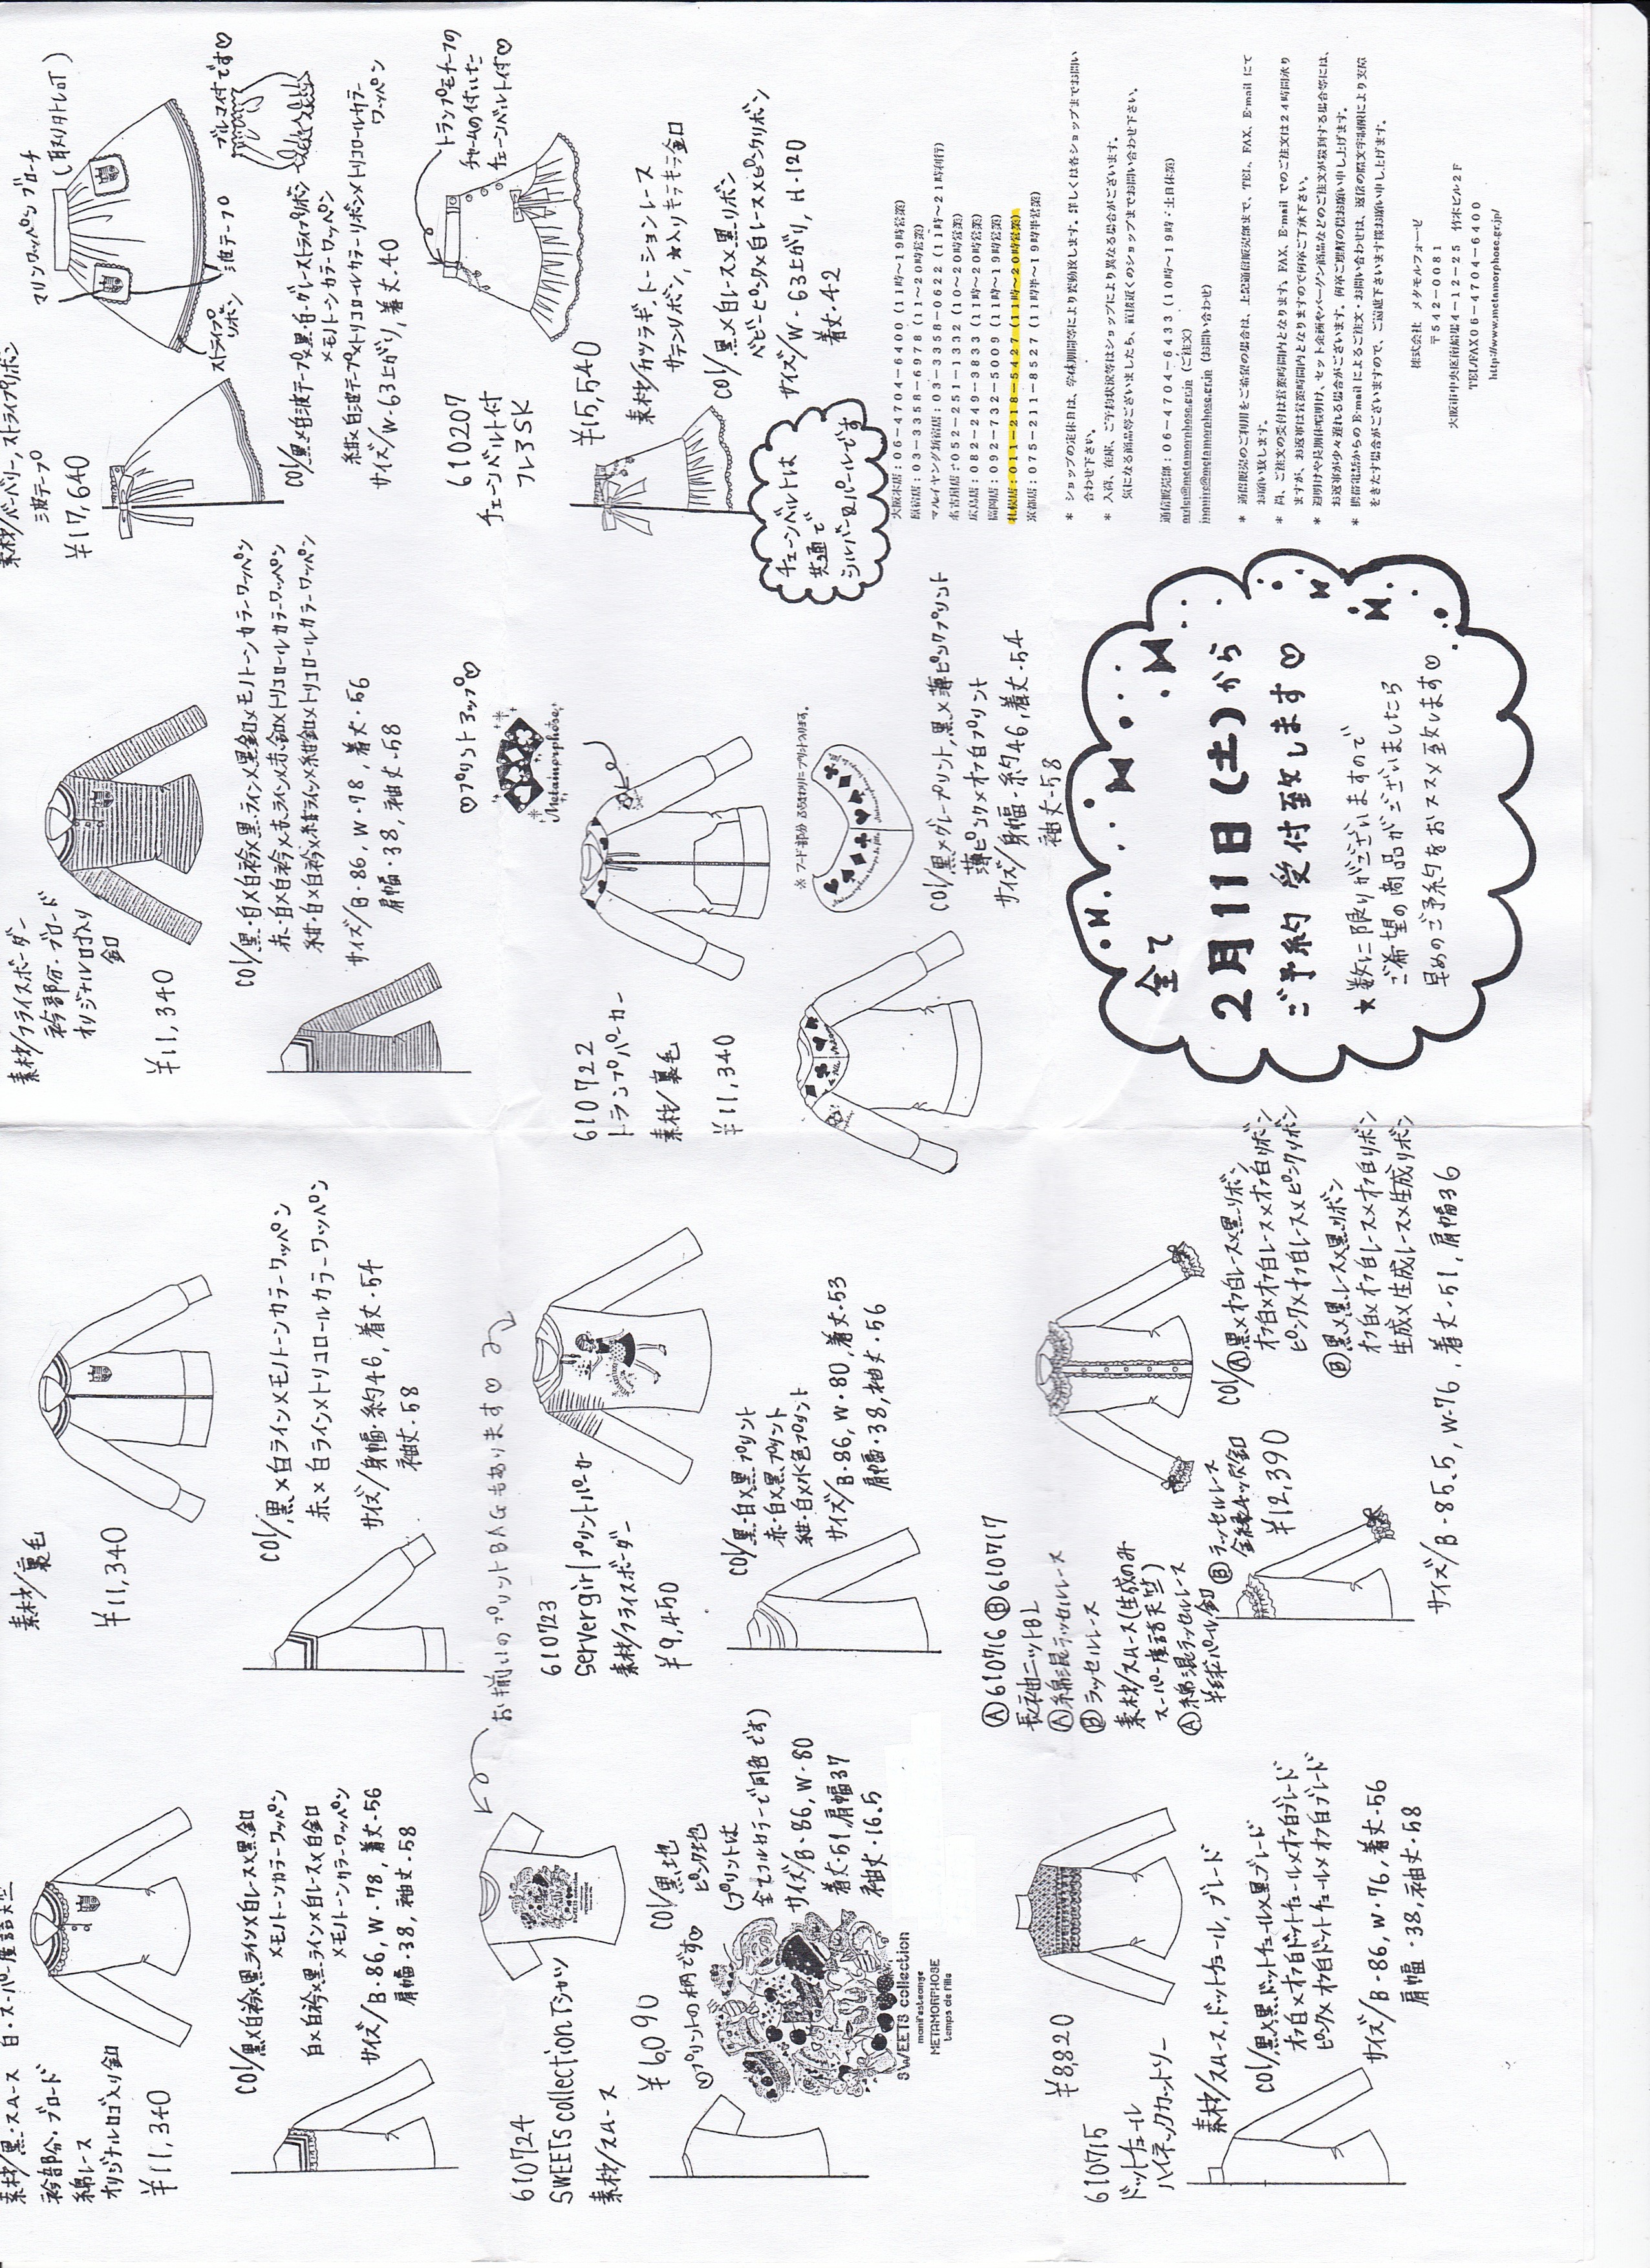 白・スーパー度詰天竺
素材/黒・スムース
衿部分・ブロード
綿レース
オリジナルロゴ入り釦
¥11,340
col/黒×白衿×黒ライン×白レース×黒釦
×モノトーンカラーワッペン
白×白衿×黒ライン×白レース×白釦
×モノトーンカラーワッペン
サイズ/B・86, W・78, 着丈・56
肩幅・38, 袖丈・58
素材/裏毛
¥11,340
col/黒×白ライン×モノトーンカラーワッペン
赤×白ライン×トリコロールカラーワッペン
サイズ/身幅・約46, 着丈・54
袖丈・58
素材/フライスボーダー
衿部分・ブロード
オリジナルロゴ入り
釦
¥11,340
col/黒・白×白衿×黒ライン×黒釦×モノトーンカラーワッペン
赤・白×白衿×赤ライン×赤釦×トリコロールカラーワッペン
紺・白×白衿×紺ライン×紺釦×トリコロールカラーワッペン
サイズ/B・86, W・78, 着丈・56
肩幅・38, 袖丈・58
素材/バーバリー, ストライプリボン
三波テープ
¥17,640
マリンワッペンブローチ
(取りはずしOK)
ストライプ
リボン
三波テープ
ブルマ付です♡
col/黒×白波テープ×黒・白・グレーストライプリボン
×モノトーンカラーワッペン
紺×白波テープ×トリコロールカラーリボン×トリコロールカラー
ワッペン
サイズ/W・63上がり, 着丈・40
610724
SWEETS collection Tシャツ
素材/スムース
¥6,090
♡プリントの柄です♡
SWEETS collection
manifesteange
METAMORPHOSE
temps de fille
col/黒地
ピンク地
(プリントは
全てフルカラーで同色です)
サイズ/B・86, W・80
着丈・51, 肩幅37
袖丈・16.5
お揃いのプリントBAGもあります♡
610723
servergirlプリントパーカー
素材/フライスボーダー
¥9,450
col/黒・白×黒プリント
赤・白×黒プリント
紺・白×水色プリント
サイズ/B・86, W・80, 着丈・53
肩幅・38, 袖丈・56
610722
トランプパーカー
素材/裏毛
¥11,340
♡プリントアップ♡
Metamorphose
※フード部分ふちどりにプリント入ります。
col/黒×グレープリント, 黒×薄ピンクプリント
薄ピンク×オフ白プリント
サイズ/身幅・約46, 着丈・54
袖丈・58
610207
チェーンベルト付
フレアSK
¥15,540
トランプモチーフの
チャームの付いた
チェーンベルト付♡
素材/カツラギ, トーションレース
サテンリボン, ★入りキラキラ釦
col/黒×白レース×黒リボン
ベビーピンク×白レース×ピンクリボン
サイズ/W・63上がり, H・120
着丈・42
チェーンベルトは
共通で
シルバー&パールです
610715
ドットチュール
ハイネックカットソー
¥8,820
素材/スムース, ドットチュール, ブレード
col/黒×黒ドットチュール×黒ブレード
オフ白×オフ白ドットチュール×オフ白ブレード
ピンク×オフ白ドットチュール×オフ白ブレード
サイズ/B・86, W・76, 着丈・56
肩幅・38, 袖丈・58
Ⓐ610716 Ⓑ610717
長袖ニットBL
Ⓐ綿混ラッセルレース
Ⓑラッセルレース
素材/スムース(生成のみ
スーパー度詰天竺)
Ⓐ綿混ラッセルレース
半球パール釦
Ⓑラッセルレース
金縁キャッツ釦
¥12,390
col/Ⓐ黒×オフ白レース×黒リボン
オフ白×オフ白レース×オフ白リボン
ピンク×オフ白レース×ピンクリボン
Ⓑ黒×黒レース×黒リボン
オフ白×オフ白レース×オフ白リボン
生成×生成レース×生成リボン
サイズ/B・85.5, W・76, 着丈・51, 肩幅36
全て
2月11日(土)から
ご予約受付致します♡
★数に限りがございますので
ご希望の商品がございましたら
早めのご予約をおススメ致します♡
大阪本店:06-4704-6400 (11時~19時営業)
原宿店:03-3358-6978 (11~20時営業)
マルイヤング新宿店:03-3358-0622 (11時~21時営業)
名古屋店:052-251-1332 (10~20時営業)
広島店:082-249-3833 (11時~20時営業)
福岡店:092-732-5009 (11時~19時営業)
札幌店:011-218-5427 (11時~20時営業)
京都店:075-211-8527 (11時半~19時半営業)
* ショップの定休日は、学休期間等により変動致します。詳しくは各ショップまでお問い
合わせ下さい。
* 入荷、在庫、ご予約状況等はショップにより異なる場合がございます。
気になる商品等ございましたら、直接近くのショップまでお問い合わせ下さい。
通信販売部:06-4704-6433 (10時~19時・土日休業)
order@metamorphose.gr.jp (ご注文)
inquire@metamorphose.gr.jp (お問い合わせ)
* 通信販売のご利用をご希望の場合は、上記通信販売部まで、TEL、FAX、E-mail にて
お願い致します。
* 尚、ご注文の受付は営業時間内となります。FAX、E-mail でのご注文は24時間承り
ますが、お返事は営業時間内となりますので何卒ご了承下さい。
* 週明けや長期休暇明け、セット企画やバーゲン商品などのご注文が殺到する場合等には、
お返事が少々遅れる場合がございます。何卒ご理解の程お願い申し上げます。
* 携帯電話からの E-mail によるご注文・お問い合わせは、返信の際文字制限により支障
をきたす場合がございますので、ご遠慮下さいます様お願い申し上げます。
株式会社 メタモルフォーゼ
〒542-0081
大阪市中央区南船場4-12-25 竹本ビル2F
TEL/FAX 06-4704-6400
http://www.metamorphose.gr.jp/